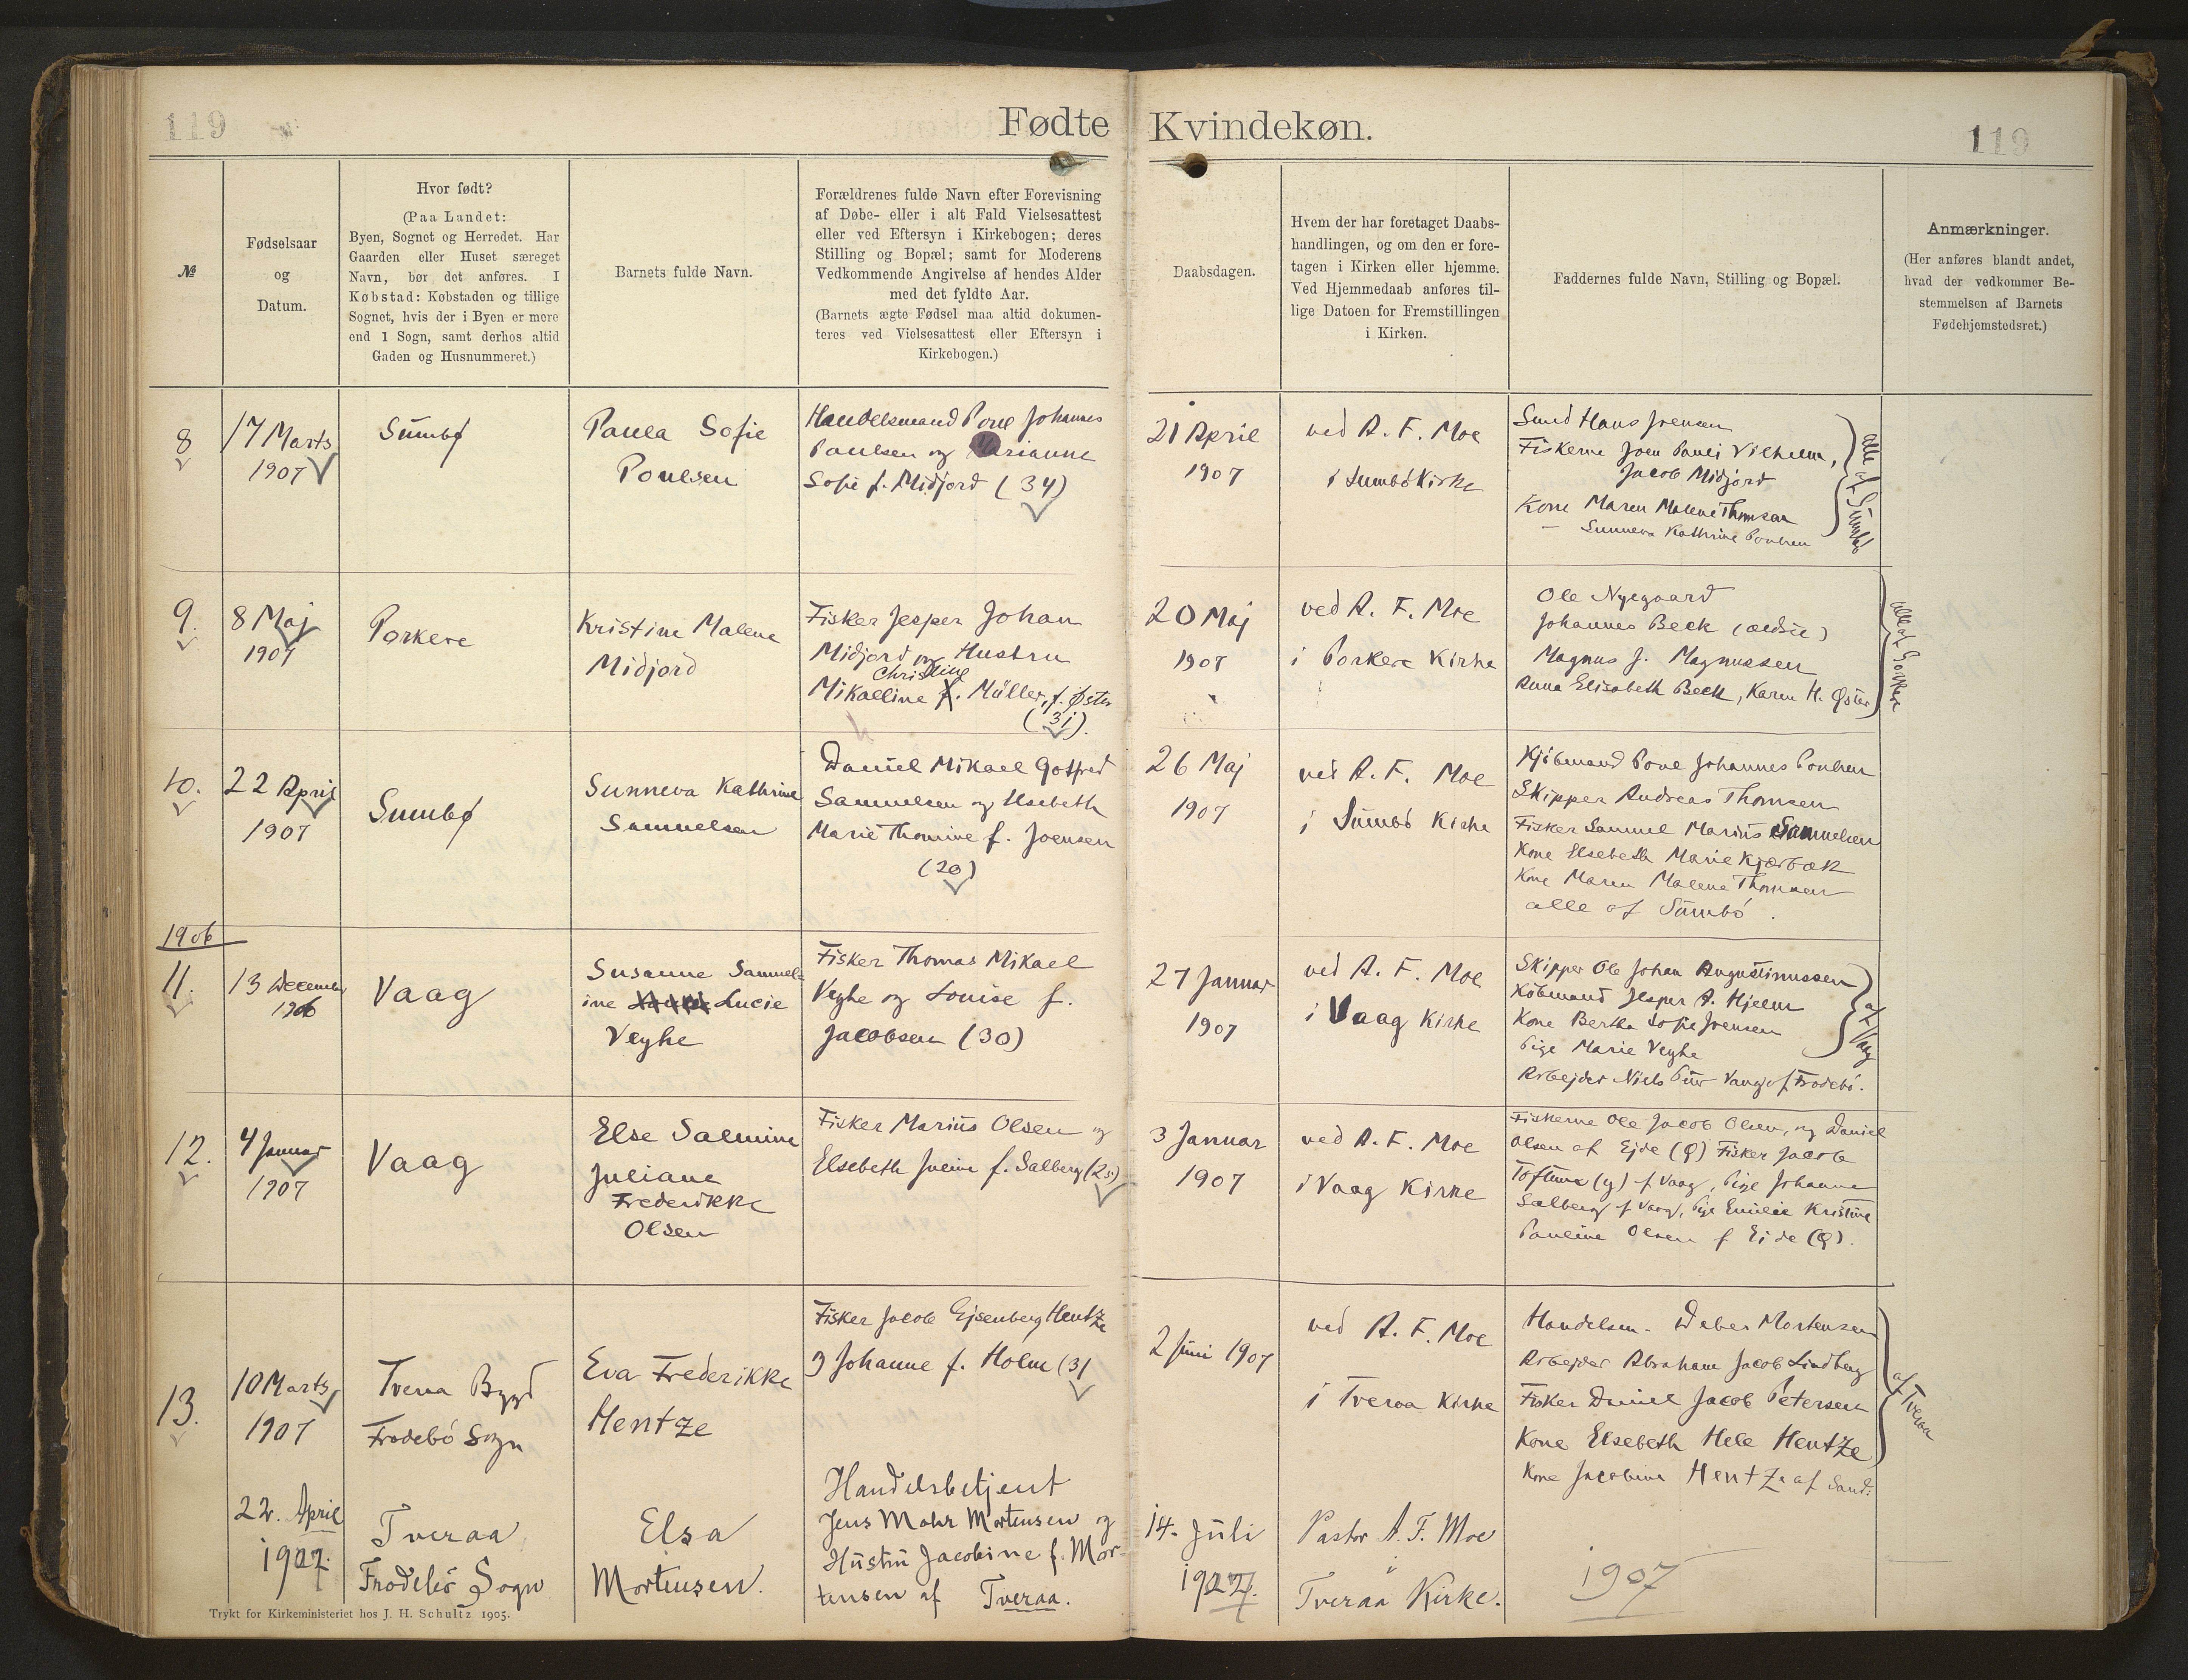 119
Fødte
Kvindekøn.
119
№
Fødselsaar
og
Datum.
Hvor født?
(Paa Landet:
Byen, Sognet og Herredet. Har
Gaarden eller Huset særeget
Navn, bør det anføres. I
Købstad: Købstaden og tillige
Sognet, hvis der i Byen er mere
end 1 Sogn, samt derhos altid
Gaden og Husnummeret.)
Barnets fulde Navn.
Forældrenes fulde Navn efter Forevisning
af Døbe- eller i alt Fald Vielsesattest
eller ved Eftersyn i Kirkebogen; deres
Stilling og Bopæl; samt for Moderens
Vedkommende Angivelse af hendes Alder
med det fyldte Aar.
(Barnets ægte Fødsel maa altid dokumen-
teres ved Vielsesattest eller Eftersyn i
Kirkebogen.)
Daabsdagen.
Hvem der har foretaget Daabs-
handlingen, og om den er fore-
tagen i Kirken eller hjemme.
Ved Hjemmedaab anføres til-
lige Datoen for Fremstillingen
i Kirken.
Faddernes fulde Navn, Stilling og Bopæl.
Anmærkninger.
(Her anføres blandt andet,
hvad der vedkommer Be-
stemmelsen af Barnets
Fødehjemstedsret.)
8
17 Marts
1907
Sumbø
Paula Sofie
Poulsen
Handelsmand Poul Johannes
Poulsen og Marianne
Sofie f. Midjord (34)
21 April
1907
ved A. F. Moe
i Sumbó Kirke
Smed Hans Joensen
Fiskerne Joen Pauli Vilhelm,
Jacob Midjord
Kone Maren Malene Thomsen
— Sunneva Kathrine Poulsen
alle af Sumbø
9.
8 Maj
1907
Porkere
Kristine Malene
Midjord
Fisker Jesper Johan
Midjord og Hustru
Christine
Mikaeline f. Müller, f. Øster
(31).
20 Maj
1907
ved A. F. Moe
i Porkere Kirke
Ole Nygaard
Johannes Beck (ældste)
Magnus J. Magnussen
Anna Elisabeth Beck, Karen H. Øster
alle af Porkere
10.
22 April
1907
Sumbø
Sunneva Kathrine
Samuelsen
Daniel Mikael Gotfred
Samuelsen og Elsebeth
Marie Thomine f. Joensen
(20)
26 Maj
1907
ved A. F. Moe
i Sumbó Kirke
Kjöbmand Poul Johannes Poulsen
Skipper Andreas Thomsen
Fisker Samuel Marius Samuelsen
Kone Elsebeth Marie Kjærbæk
Kone Maren Malene Thomsen
alle af Sumbó.
1906
11.
13 December
1906
Vaag
Susanne Samuel-
ine Lucie
Veyhe
Fisker Thomas Mikael
Veyhe og Louise f.
Jacobsen (30)
27 Januar
1907
ved A. F. Moe
i Vaag Kirke
Skipper Ole Johan Augustinussen
Köbmand Jesper A. Hjelm
Kone Bertha Sofie Joensen
Pige Marie Veyhe
Arbejder Niels Vang af Frodebó.
af Vaag
12.
4 Januar
1907
Vaag
Else Salmine
Juliane
Frederikke
Olsen
Fisker Marius Olsen og
Elsebeth Juline f. Dalberg (25)
3 Januar
1907
ved A. F. Moe
i Vaag Kirke
Fiskerne Ole Jacob Olsen, og Daniel
Olsen af Ejde (Q) Fisker Jacob
Toftum (y) f Vaag, Pige Johanne
Salberg f Vaag, Pige Emilie Kristine
Pauline Olsen f Ejde (Q).
13.
10 Marts
1907
Tveraa Bygd
Frodebó Sogn
Eva Frederikke
Hentze
Fisker Jacob Ejsenberg Hentze
og Johanne f. Holm (31
2 Juni 1907
ved A. F. Moe
i Tveraa Kirke
Handelsm. Weber Mortensen
Arbejder Abraham Jacob Lindberg
Fisker Daniel Jacob Petersen
Kone Elsebeth Hele Hentze
Kone Jacobine Hentze af Sand.
af Tveraa
22. April
1907.
Tveraa
Frodebö Sogn
Elsa
Mortensen.
Handelsbetjent
Jens Mohr Mortensen og
Hustru Jacobine f. Mor-
tensen af Tveraa.
14. Juli
1907.
Pastor A. F. Moe
i
Tveraa Kirke.
1907
Trykt for Kirkeministeriet hos J. H. Schultz 1905.